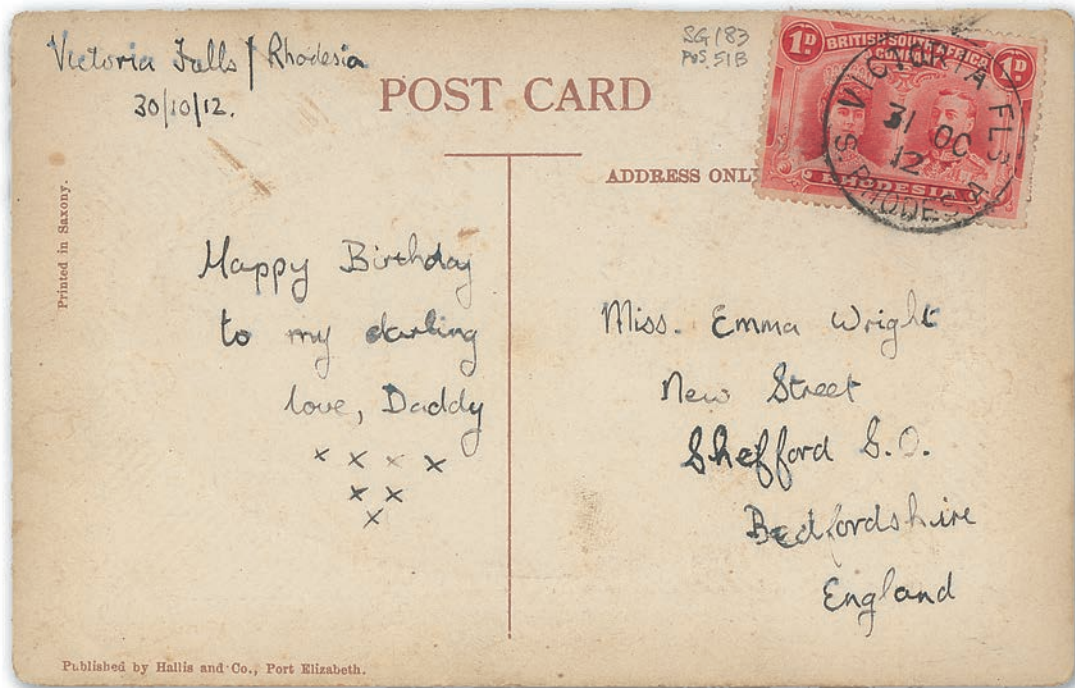 Victoria Falls / Rhodesia
30/10/12.
SG 183
POS. 51B
POST CARD
1D BRITISH SOUTH AFRICA 1D
COMPANY
RHODESIA
VICTORIA FLS
31 OC
12
S. RHODESIA
ADDRESS ONLY
Printed in Saxony.
Happy Birthday
to my darling
love, Daddy
x x x x
x x
x
Miss. Emma Wright
New Street
Shefford S.O.
Bedfordshire
England
Published by Hallis and Co., Port Elizabeth.